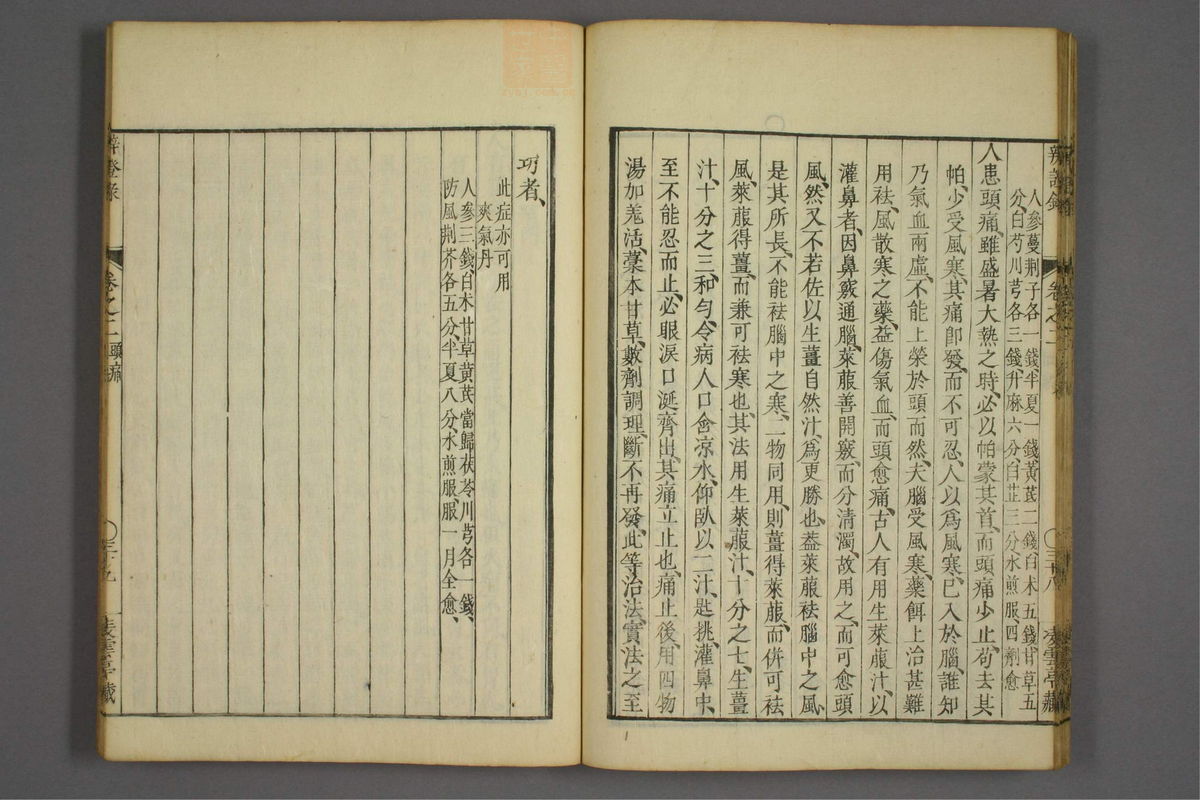 辨證錄 卷之二 三十八 凌雲亭藏
人參蔓荊子各一錢、半夏一錢黃芪二錢白朮五錢、甘草五
分、白芍川芎各三錢、升麻六分、白芷三分、水煎服、四劑愈
人患頭痛、雖盛暑大熱之時、必以帕蒙其首、而頭痛少止、苟去其
帕、少受風寒、其痛卽發、而不可忍、人以爲風寒、已入於腦、誰知
乃氣血兩虛、不能上榮於頭而然、夫腦受風寒、藥餌上治甚難
用袪風散寒之藥、益傷氣血、而頭愈痛、古人有用生萊菔汁、以
灌鼻者、因鼻竅通腦、萊菔善開竅、而分清濁、故用之、而可愈頭
風、然又不若佐以生薑自然汁、爲更勝也、葢萊菔袪腦中之風、
是其所長、不能袪腦中之寒、二物同用、則薑得萊菔、而併可袪
風、萊菔得薑、而兼可袪寒也、其法用生萊菔汁、十分之七、生薑
汁、十分之三、和勻、令病人口含凉水、仰臥以二汁、匙挑灌鼻中、
至不能忍而止、必眼淚口涎齊出、其痛立止也、痛止後、用四物
湯加羌活、藁本甘草、數劑調理、斷不再發、此等治法、實法之至
巧者、
此症亦可用
爽氣丹
人參三錢、白朮甘草黃芪當歸茯苓川芎各一錢、
防風荊芥各五分、半夏八分、水煎服、服一月全愈、
辨證錄 卷之二 頭痛 三十九 凌雲亭藏